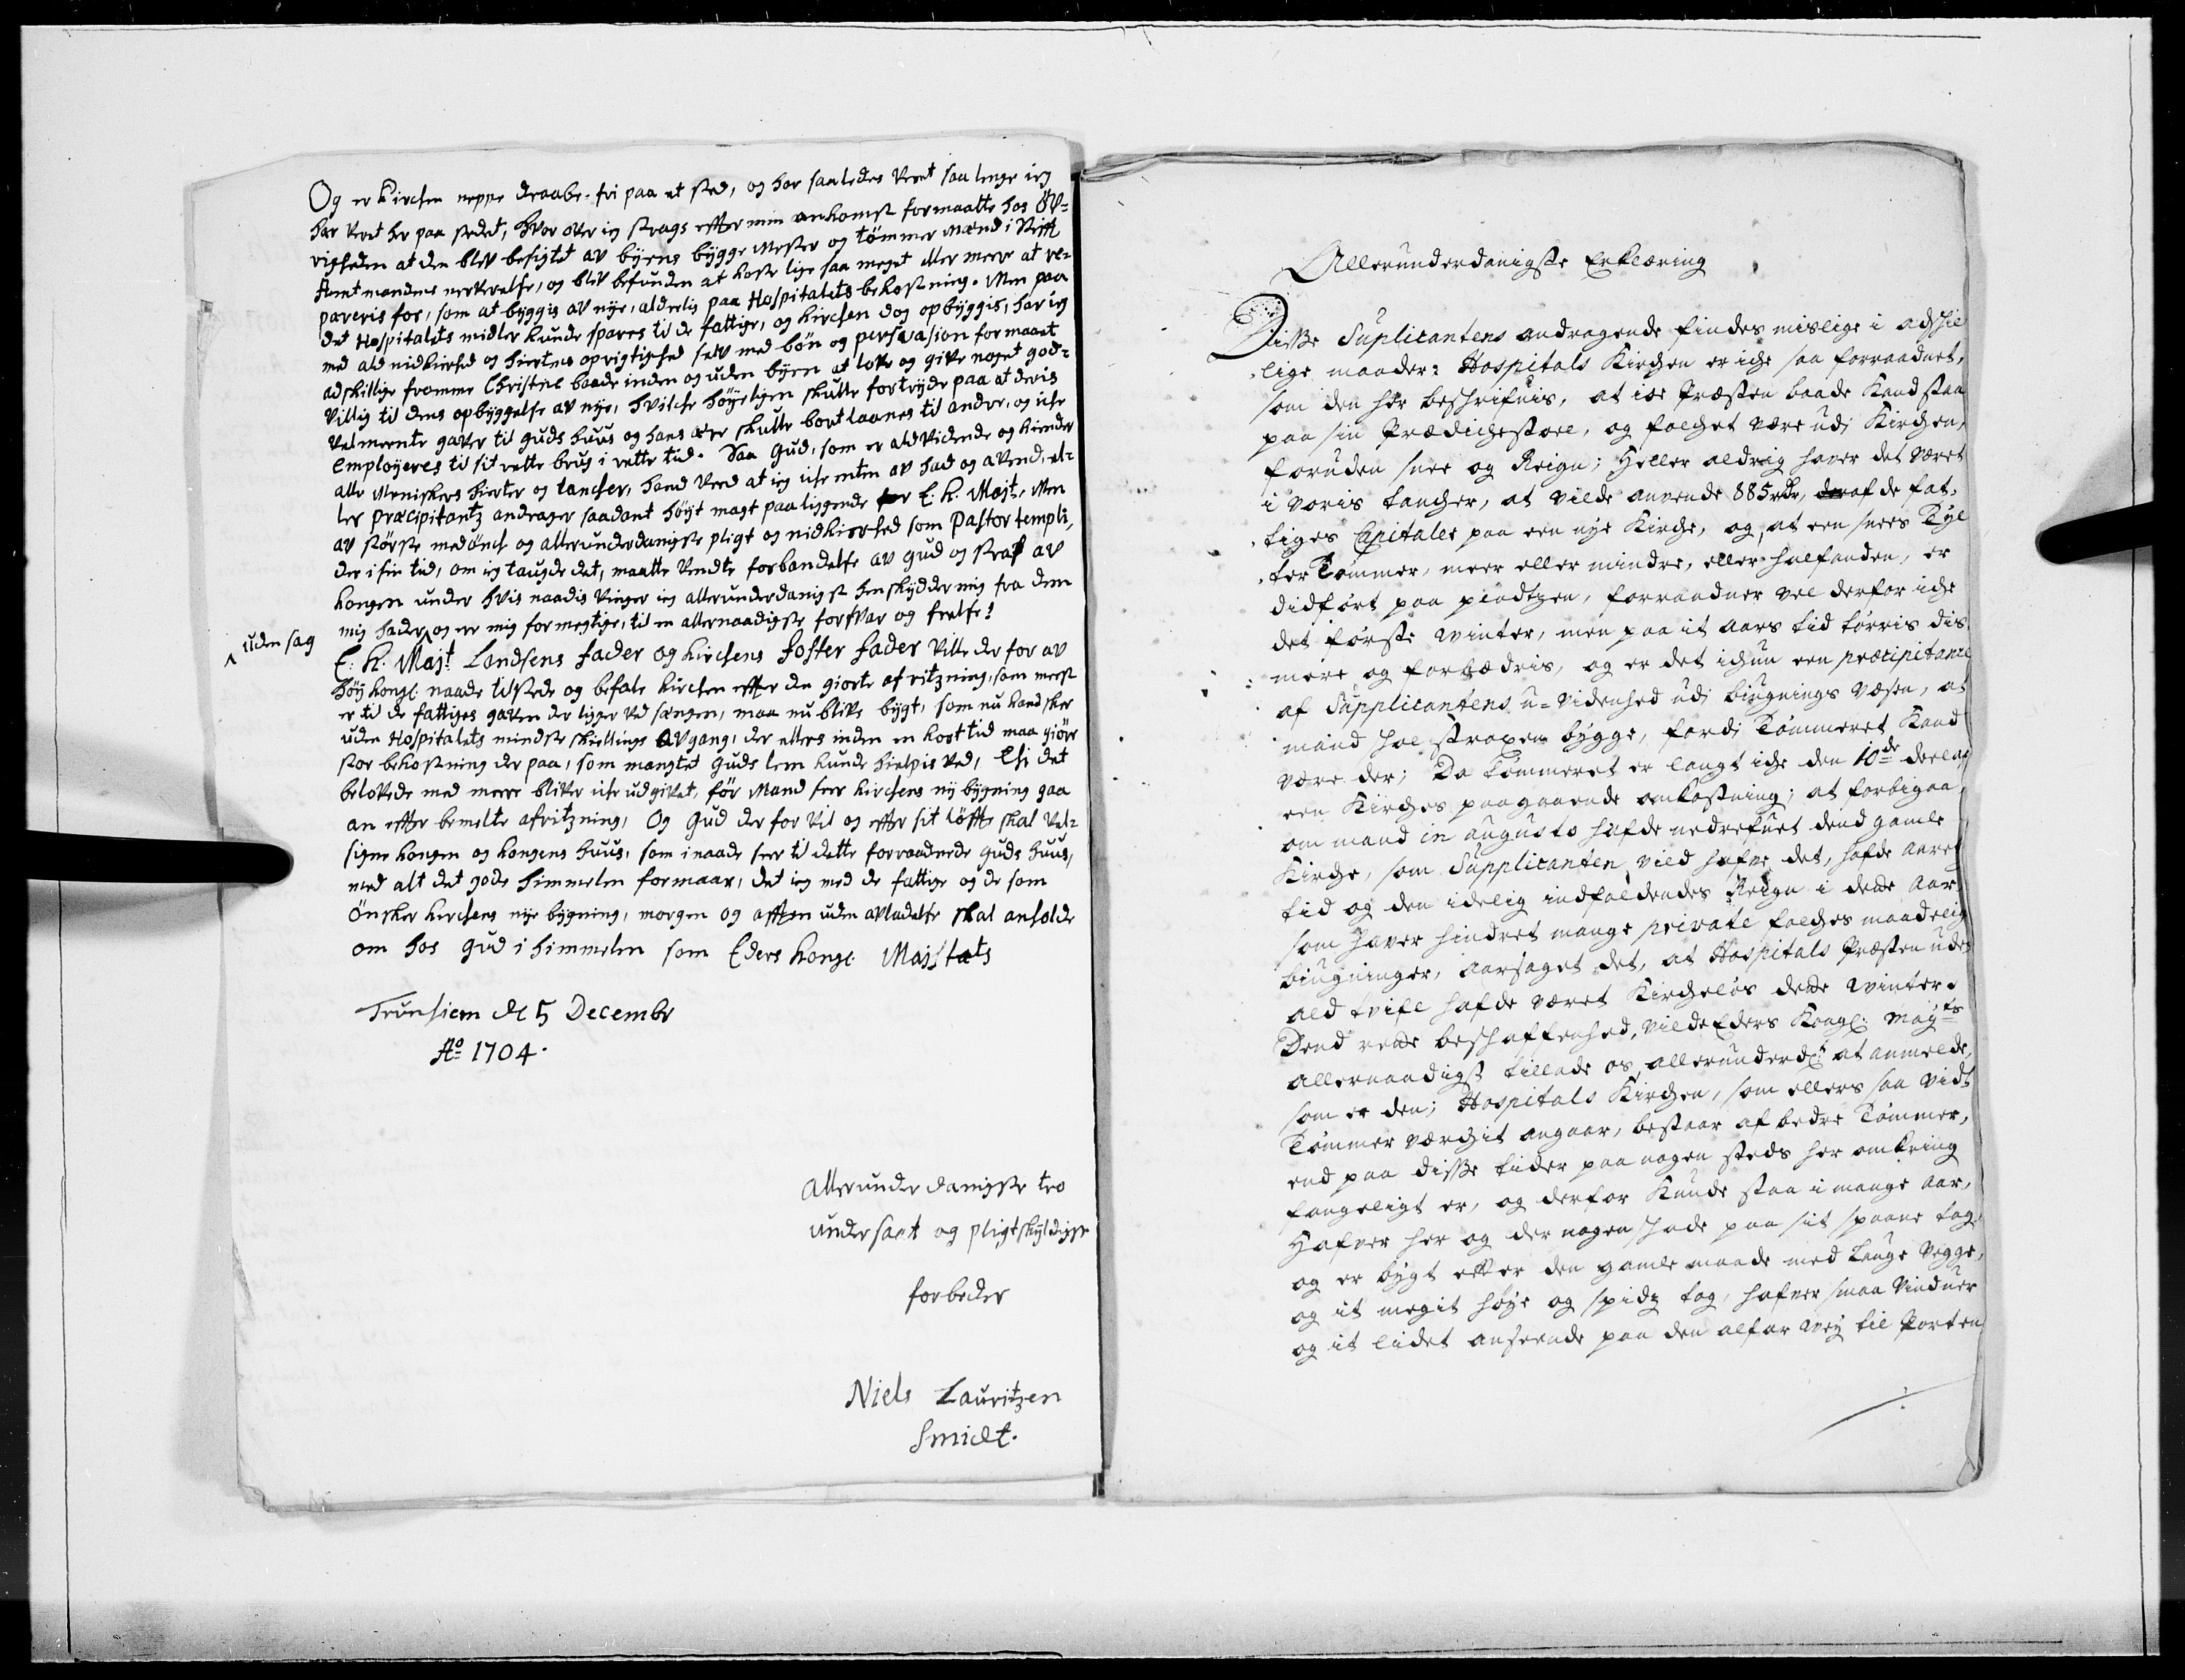 Og er Kirchen neppe draabe-fri paa et sted, og har saaledes veret saa lenge ieg
har veret her paa stedet, hvor over ieg strags effter min ankomst formaatte hos Øv-
righeden at den blev besigtet av byens bygge Mester og tömmer mænd i Stifft
Amtmandens nerverelse, og blev befunden at koste lige saa meget eller mere at re-
pareris for, som at byggis av nye, alderlis paa Hospitalets bekostning. Men paa
det Hospitalets midler kunde spares til de fattige, og kirchen dog opbyggis, har ieg
med ald nidkierhed og hiertens oprigtighed selv med bön og persvasion formaaet
adskillige fromme Christne baade inden og uden byen at love og give noget god-
villig til dens opbyggelse av nye, hvilche höyeligen skulle fortryde paa at deris
velmeente gaver til Guds huus og hans ære skulle bort laanes til andre, og iche
employeres til sit rette brug i rette tid. Saa Gud, som er aldvidende og kiender
alle Meniskers hierter og tancher, hand veed at ieg iche enten av had og avend, el-
ler præcipitantz andrager saadant höyt magt paaliggende for E. K. Majt. Men
av störste medönch og allerunderdanigste pligt og nidkierhed som Pastor templi,
der i sin tid, om ieg taugde det, maatte vendte forbandelse av Gud og straf av
kongen under hvis naadis vinger ieg allerunderdanigst henskydder mig fra dem
mig hader ^ og er mig formegtige, til en allernaadigste forsvar og frelse!
^ uden sag
E. K. Majt. Landsens fader og kirchens foster fader ville der for av
höy kongl. naade tilstede og befale kirchen effter den giorte afritzning, som meest
er til de fattiges gaven der ligger ved sængen, maa nu blive bygt, som nu kand skee
uden Hospitalets mindste skillings avgang, der ellers inden en kort tid maa giöre
stor bekostning der paa, som mangtet Guds lem kunde hielpis ved, Thi det
belovede med mere bliver iche udgivet, för Mand seer kirchens ny bygning gaa
an effter bemelte afritzning, Og Gud der for vil og effter sit löffte skal vel-
signe kongen og kongens huus, som i naade seer til dette forraadnede Guds huus,
med alt det gode himmelen formaar, det ieg med de fattige og de som
önsker kirchens nye bygning, morgen og afften uden avladelse skal anholde
om hos Gud i himmelen som Eders Kongl. Majstæts
Trunhiem de 5 Decembr
Ao 1704.
Allerunderdanigste tro
undersaat og pligtskyldigste
forbeder
Niels Lauritzen
Smidt.
Allerunderdanigste Erklæring
Disse Suplicantens andragende findes mislige i adschil
lige maader: Hospitals Kirchen er iche saa forraadnet,
som den her beschrifuis, at ioe Præsten baade kand staa
paa sin Prædichestoel, og folchet være udi Kirchen,
foruden snee og Reign; Heller aldrig haver det været
i voris tancher, at vilde anvende 885 rdr, af de fat-
tiges Capitaler paa een nye Kirche, og at een snees Tyl
ter Tømmer, meer eller mindre, eller halfanden, er
didført paa pladtzen, forraadner vel derfor iche
det første winter, men paa it aars tid tørris dis
mere og forbædris, og er det ichun een præcipitance
af Supplicantens u-videnhed udi biugnings væsen, at
mand skal straxen bygge, fordi Tømmeret kand
være der; Da Tømmeret er langt iche den 10de deel af
een Kirches paagaaende omkostning; at forbigaa,
om mand in augusto hafde nedrefuet dend gamle
Kirche, som Supplicanten vild hafve det, hafde aaret
tid og den idelig indfaldendes Reign i dette Aar,
som haver hindret mange private folches maadelig
biugninger, aarsaget det, at Hospitals Præsten uden
ald tvifl hafde været Kircheløs dette winter.
Dend rette beschaffenhed, vilde Eders Kongl: Mayts
allernaadigst tillade os, allerunderd: at anmelde,
som er den; Hospitals Kirchen, som ellers saa vidt
Tømmer værchit angaar, bestaar af bedre Tømmer,
end paa disse tider paa nogen steds her omkring
fangeligt er, og derfor kunde staa i mange Aar,
Hafver her og der nogen schade paa sit spaane tag,
og er bygt effter den gamle maade med lauge vegge,
og it megit høye og spidz tag, hafver smaa vinduer
og it lidet anseende paa den alfar vey til Porten